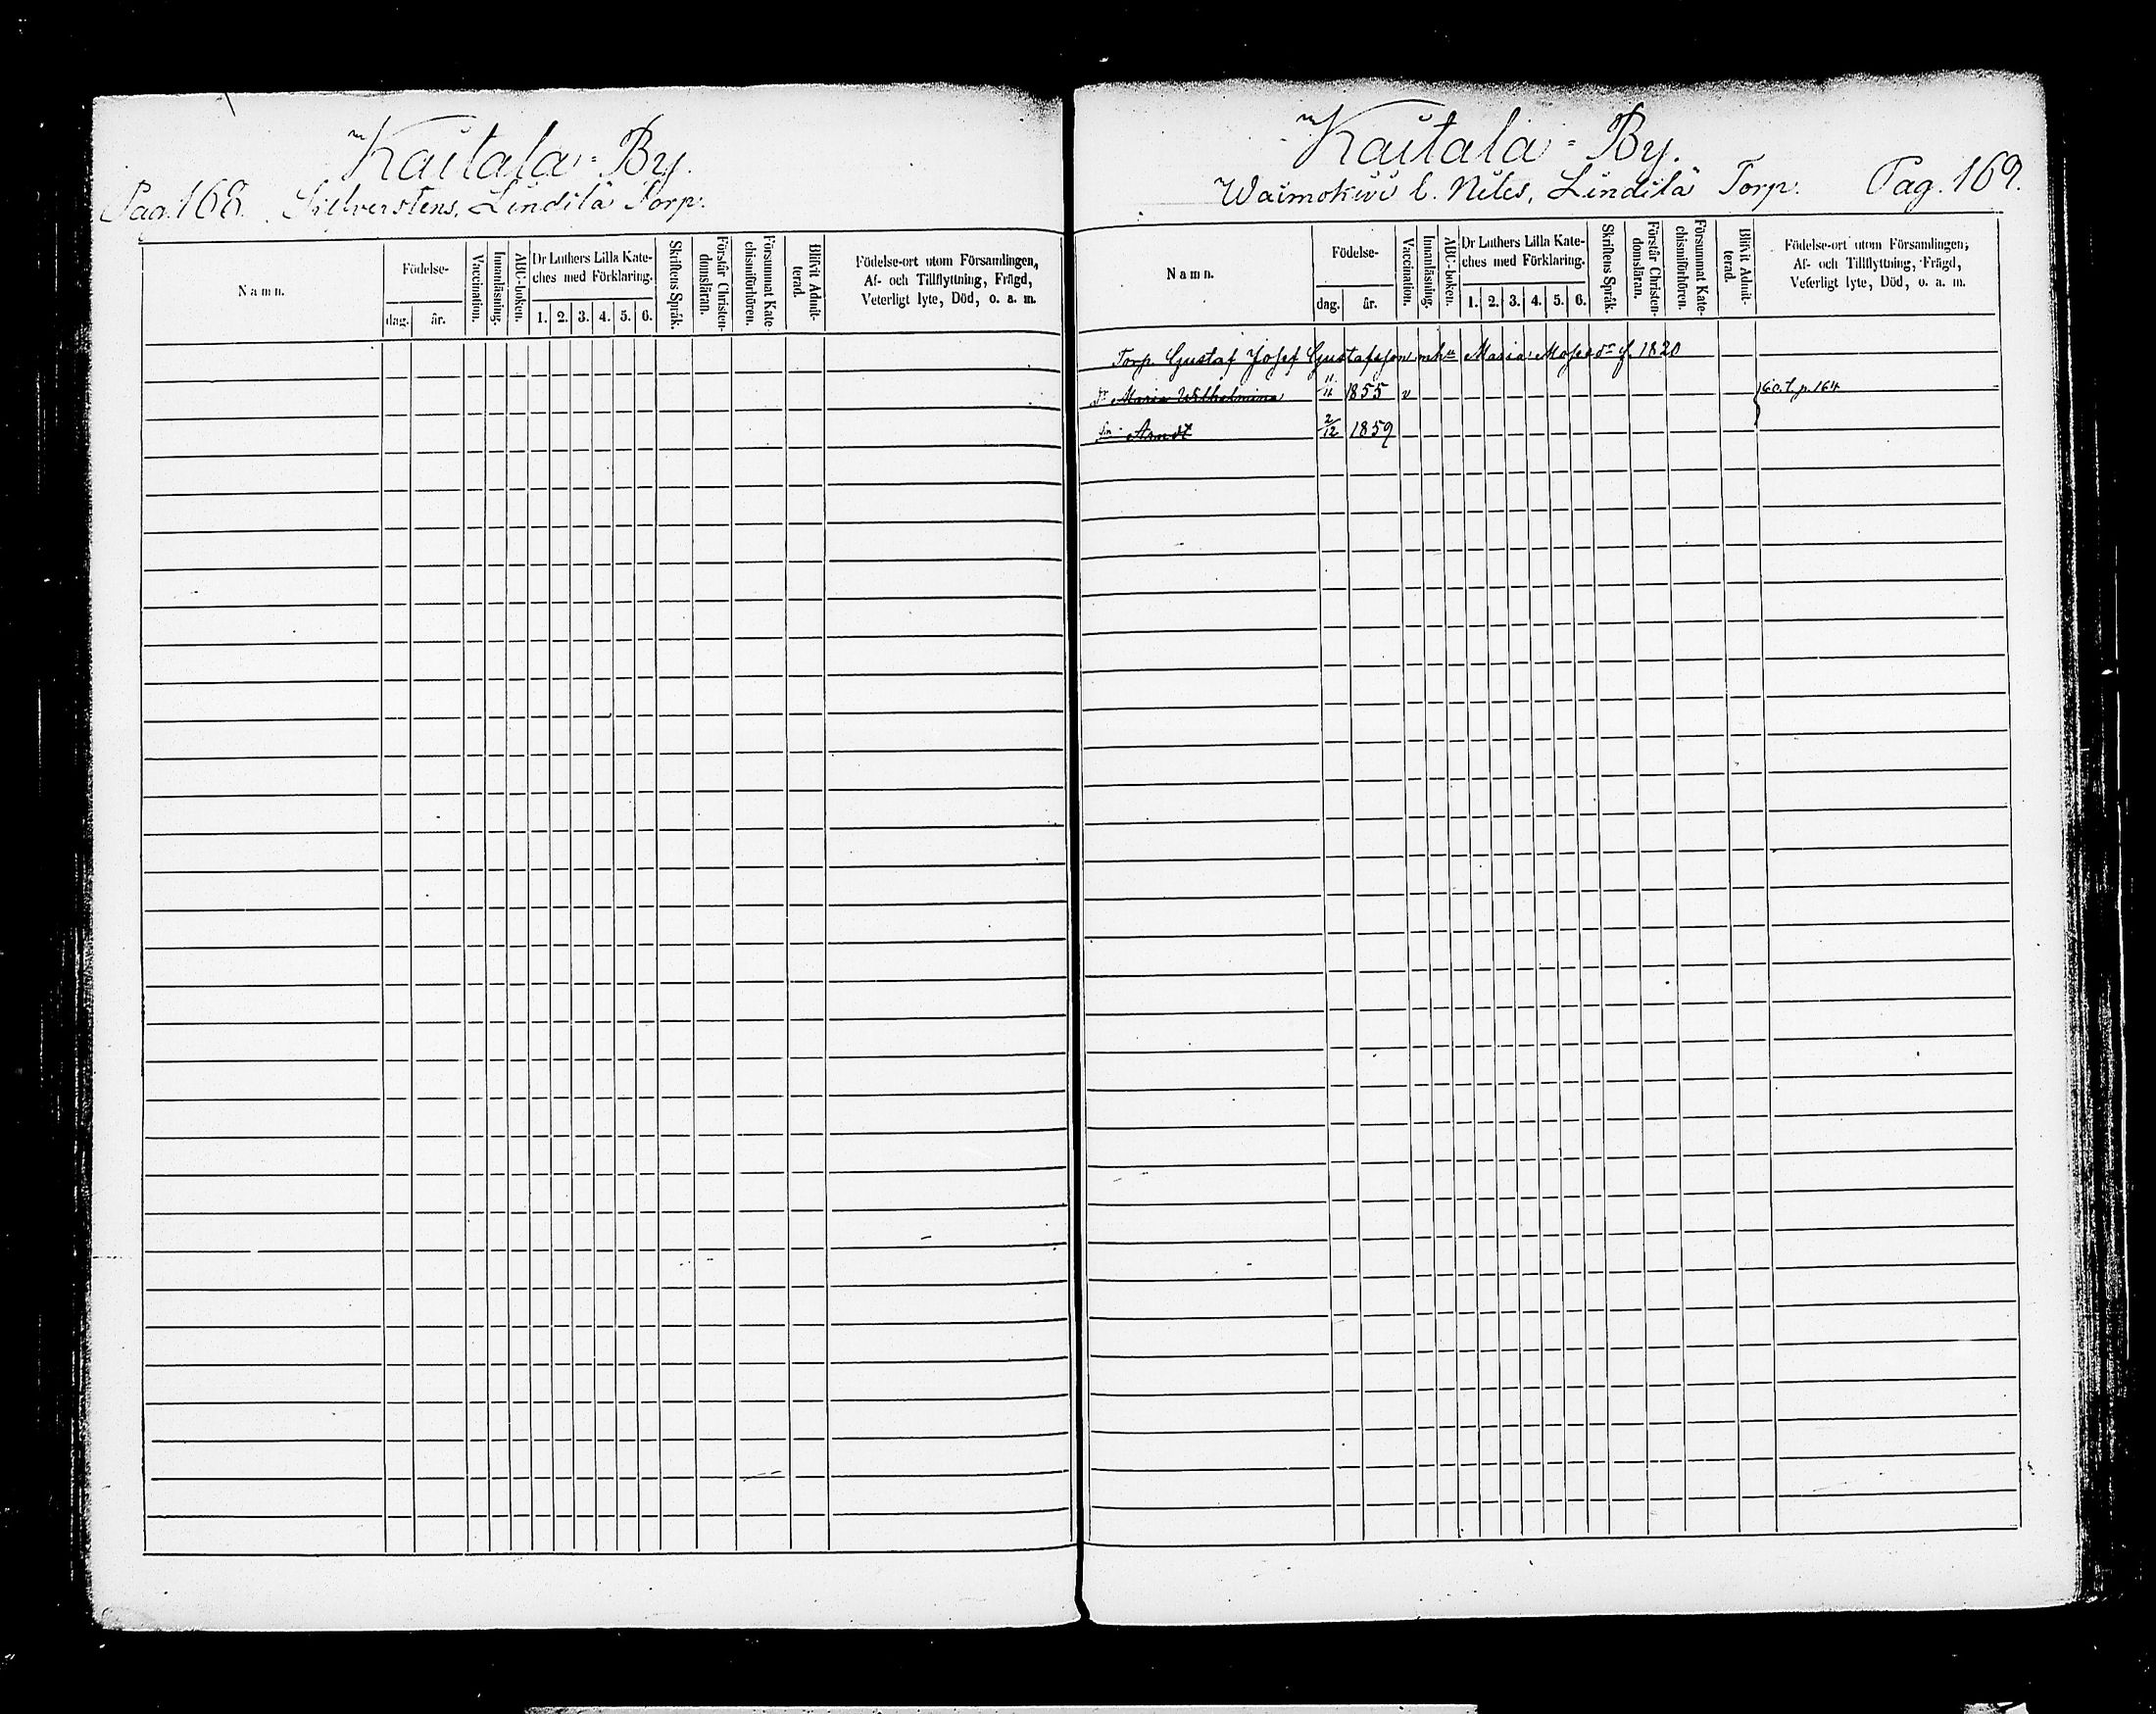 Kaitala=By.
Pag. 168. Silverstens, Lindilä Torp.
Namn.
Födelse-
dag.
år.
Vaccination.
Innanläsning.
ABC-boken.
Dr Luthers Lilla Kate-
ches med Förklaring.
1. 2. 3. 4. 5. 6.
Skriftens Språk.
Förstår Christen-
domsläran.
Försummat Kate-
chismiförhören.
Blifvit Admit-
terad.
Födelse-ort utom Församlingen,
Af- och Tillflyttning, Frägd,
Veterligt lyte, Död, o. a. m.
Kaitala=By.
Waimokivi l. Niles, Lindilä Torp. Pag. 169.
Namn.
Födelse-
dag.
år.
Vaccination.
Innanläsning.
ABC-boken.
Dr Luthers Lilla Kate-
ches med Förklaring.
1. 2. 3. 4. 5. 6.
Skriftens Språk.
Förstår Christen-
domsläran.
Försummat Kate-
chismiförhören.
Blifvit Admit-
terad.
Födelse-ort utom Församlingen,
Af- och Tillflyttning, Frägd,
Veterligt lyte, Död, o. a. m.
Torp. Gustaf Josef Gustafsson Maria Moses dr f. 1820
dr Maria Wilhelmina 11/11 1855 v p. 164
sn Arndt 2/12 1859